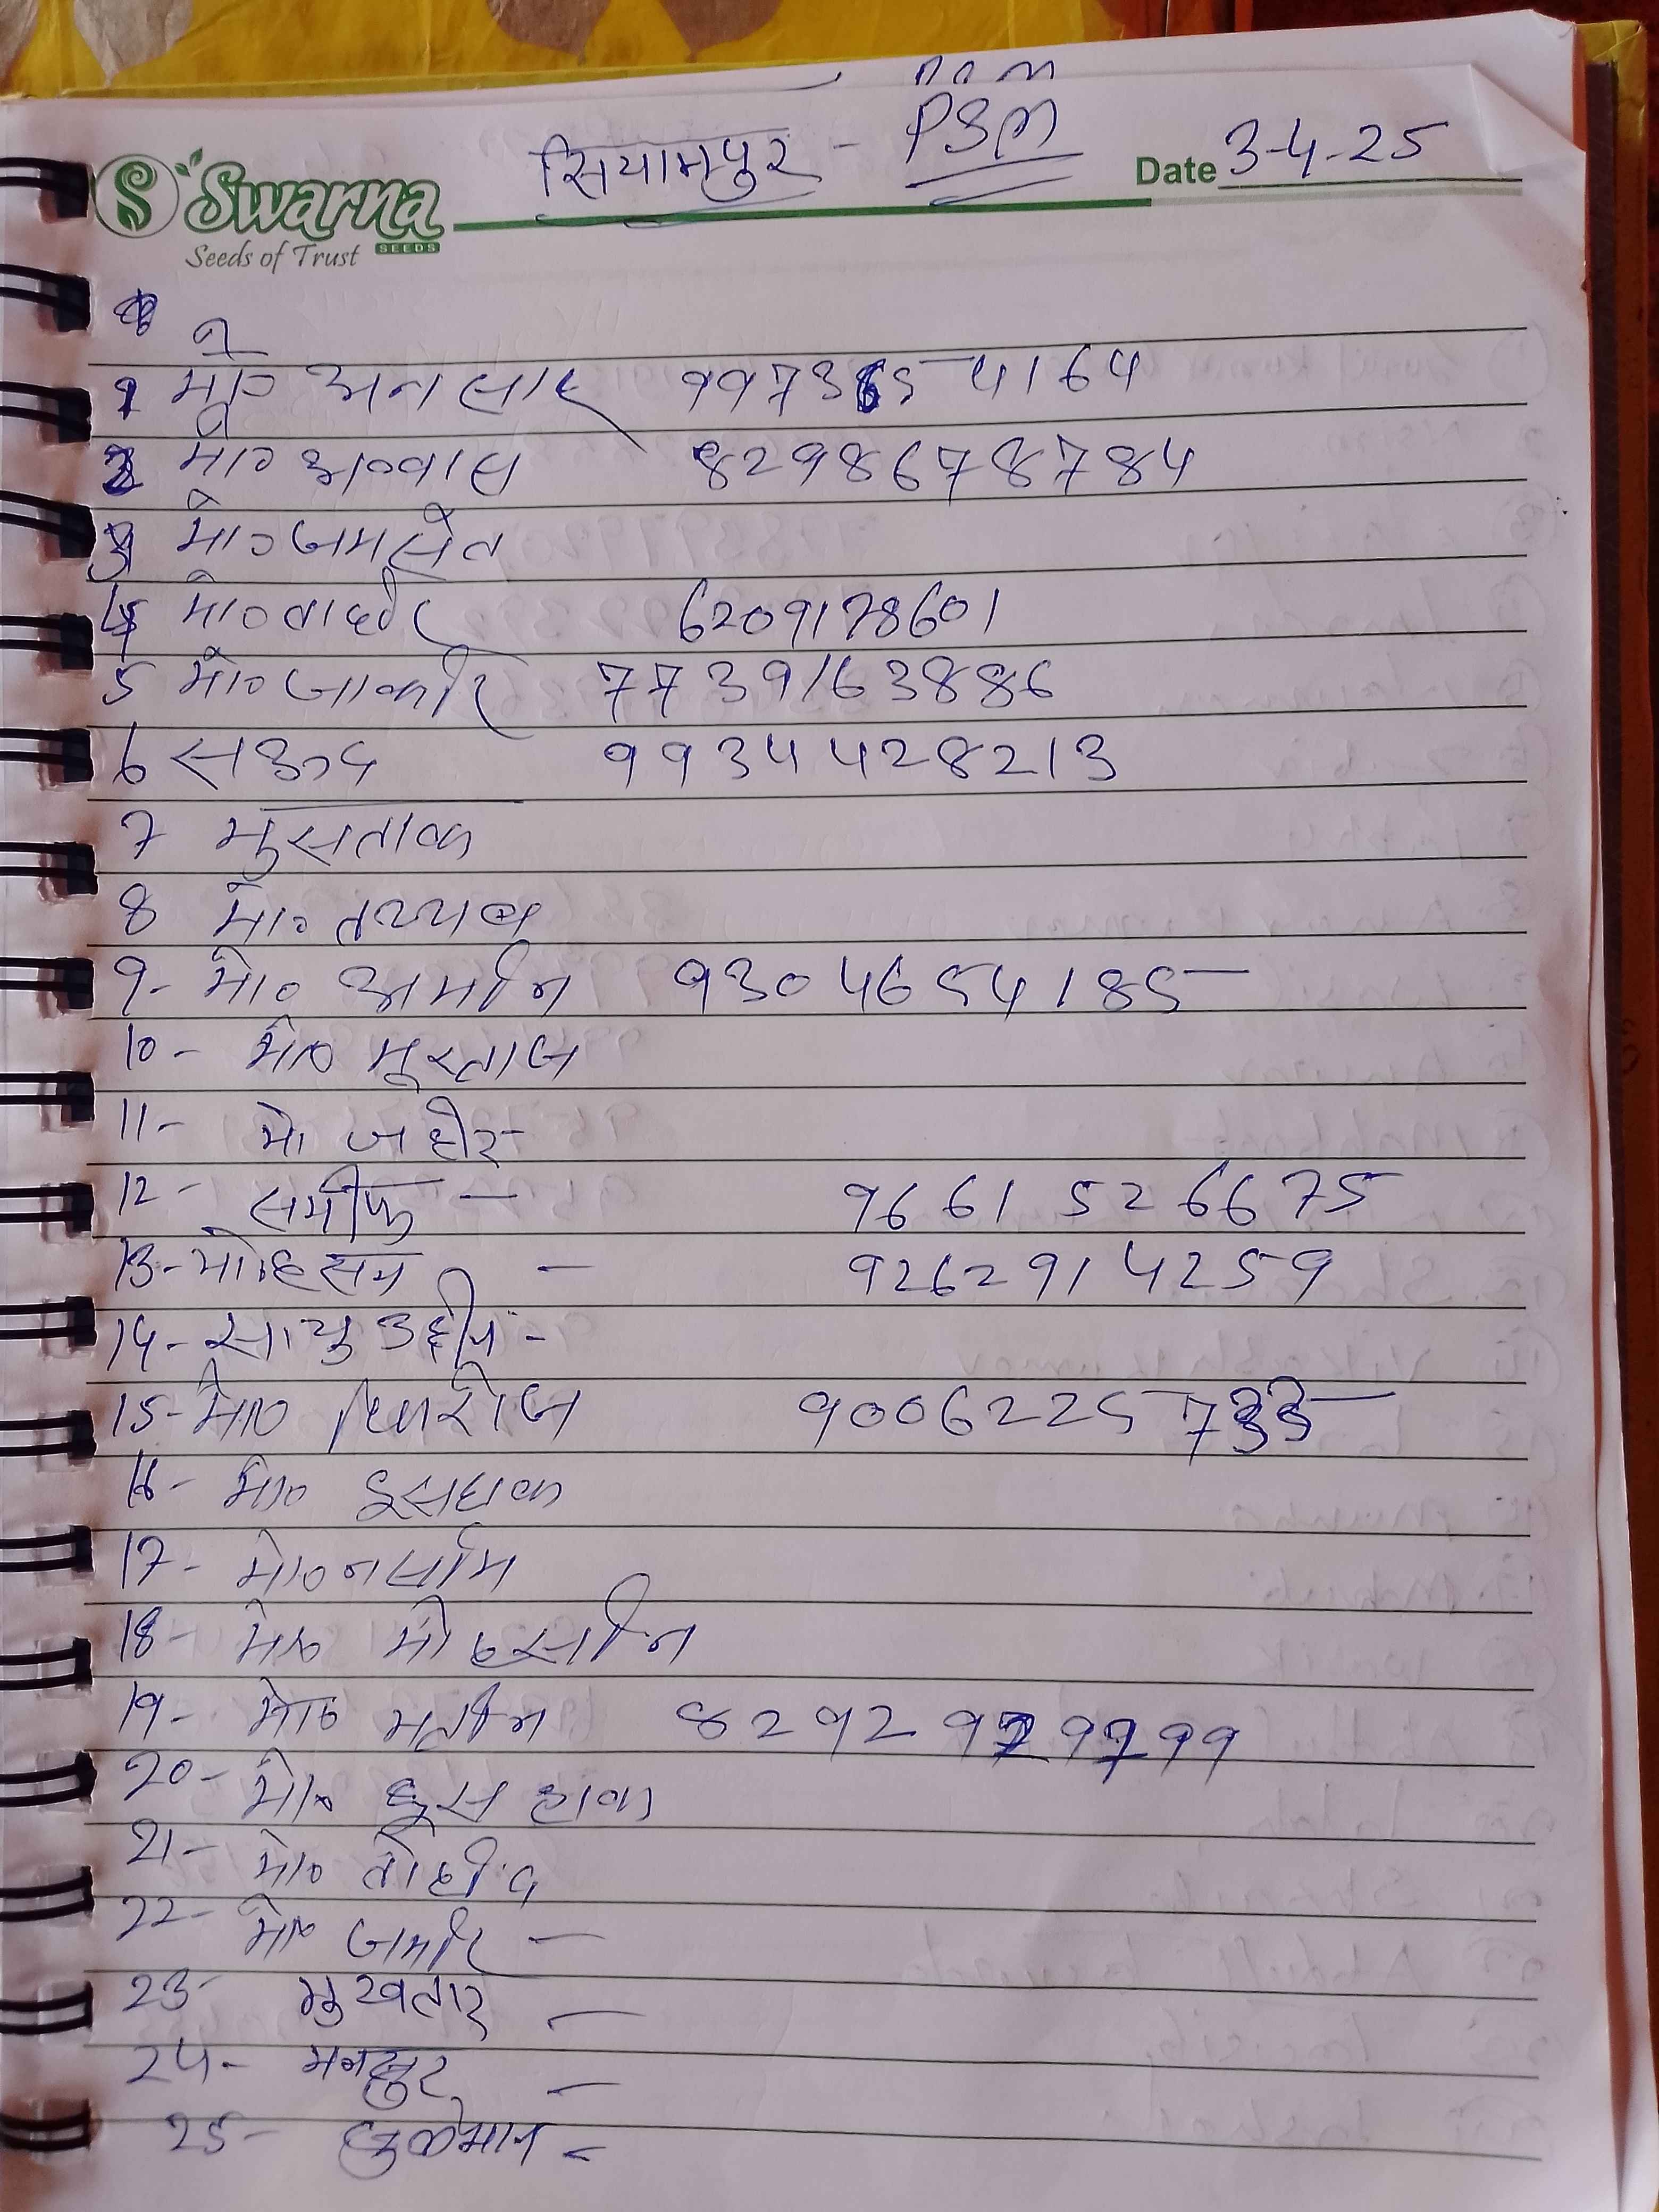 सियामपुर - PSM
Swarna
SEEDS
Seeds of Trust
Date 3-4-25
1 मो० अनसार
2 मो० अब्वास 8298678784
3 मो० जमसेत
4 मो० वाहीद 6209178601
5 मो० जाकीर 7739163886
6 9934428213
7 मुसताक
8 मो० तय्यब
9- मो० अमीन 9304654185
10- मो० मुस्ताज
11- मो जहीर
12- समीफ - 9661526675
13- मो० हसन - 9262914259
14- उद्दीन -
15- मो० फिरोज 9006225733
16- मो० इसहाक
17- मो० नसीम
18- मो० मोहसीन
19- मो० मतीन
20- मो० इसहाक
21- मो० तोहीद
22- मो० जमीर -
23- मुखतार -
24- मनसुर -
25- सुलेमान -